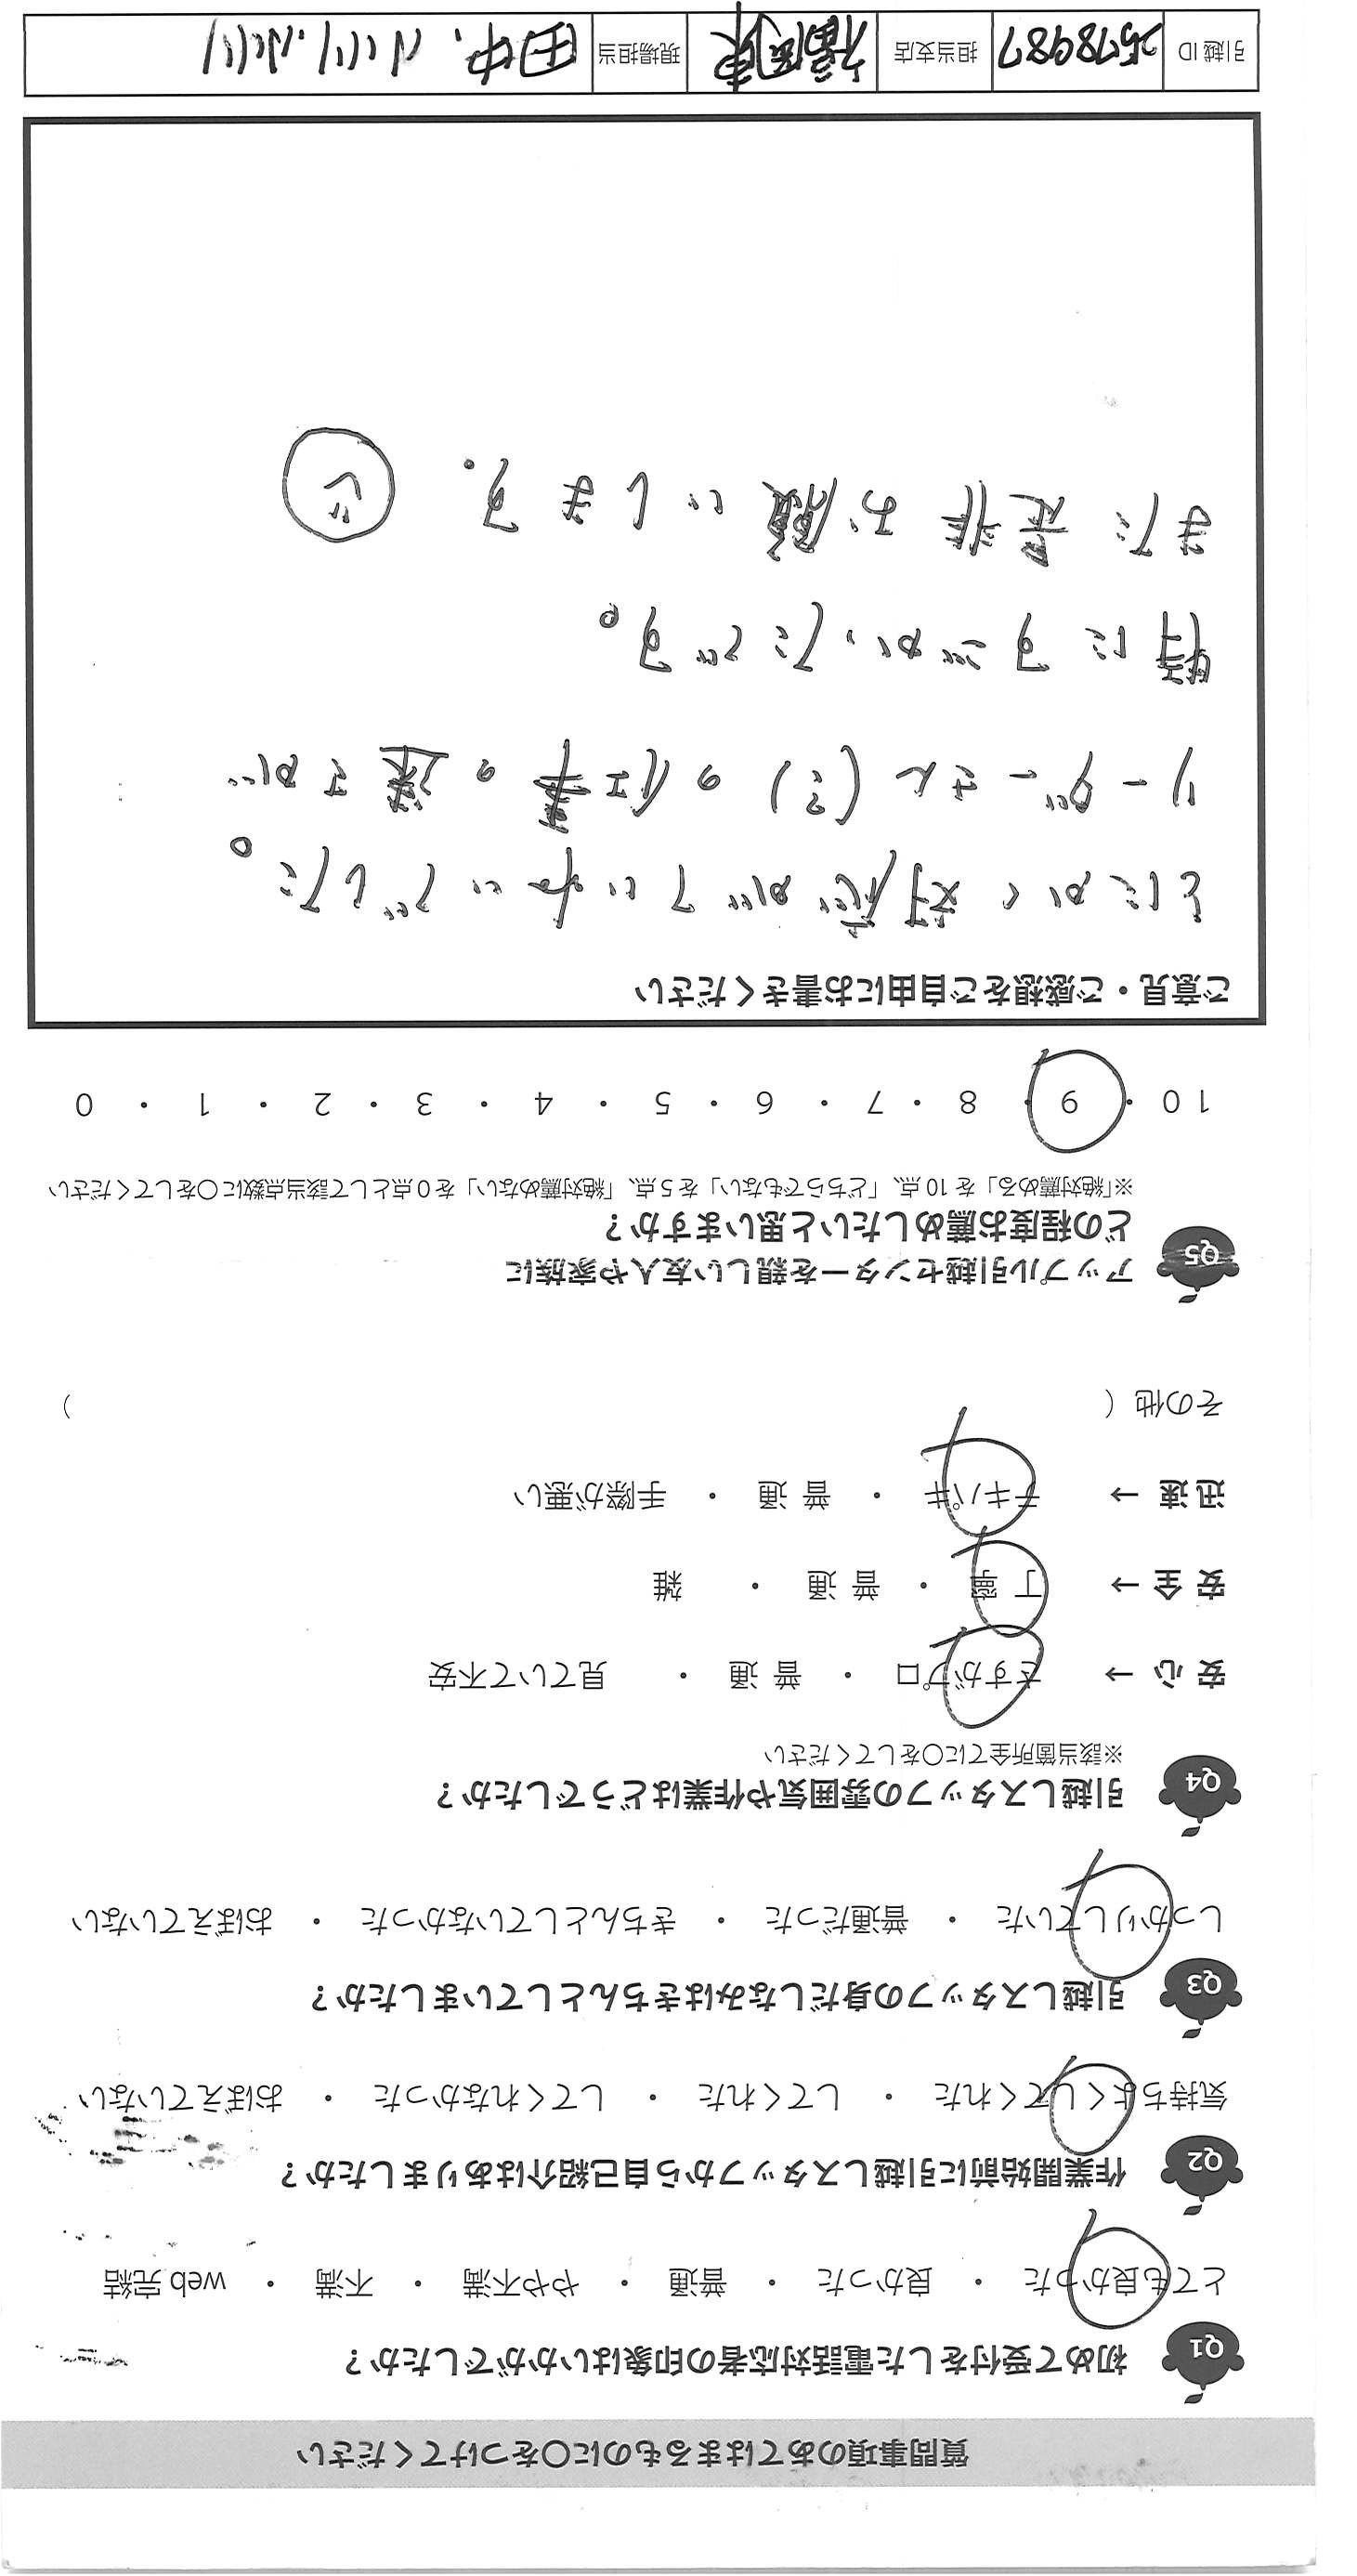 質問事項のあてはまるものに○をつけてください
Q1 初めて受付をした電話対応者の印象はいかがでしたか？
とても良かった ・ 良かった ・ 普通 ・ やや不満 ・ 不満 ・ web 完結
Q2 作業開始前に引越しスタッフから自己紹介はありましたか？
気持ちよくしてくれた ・ してくれた ・ してくれなかった ・ おぼえていない
Q3 引越しスタッフの身だしなみはきちんとしていましたか？
しっかりしていた ・ 普通だった ・ きちんとしていなかった ・ おぼえていない
Q4 引越しスタッフの雰囲気や作業はどうでしたか？
※該当箇所全てに○をしてください
安 心 → さすがプロ ・ 普 通 ・ 見ていて不安
安 全 → 丁 寧 ・ 普 通 ・ 雑
迅 速 → テキパキ ・ 普 通 ・ 手際が悪い
その他 （ ）
Q5 アップル引越センターを親しい友人や家族に
どの程度お薦めしたいと思いますか？
※「絶対薦める」を 10 点、「どちらでもない」を 5 点、「絶対薦めない」を 0 点として該当点数に○をしてください
10 ・ 9 ・ 8 ・ 7 ・ 6 ・ 5 ・ 4 ・ 3 ・ 2 ・ 1 ・ 0
ご意見・ご感想をご自由にお書きください
とにかく対応がていねいでした。
リーダーさん(?)の仕事の速さが
特にすごかったです。
また是非お願いします。
引越 ID 2578987 担当支店 福岡東 現場担当 田中、小川、